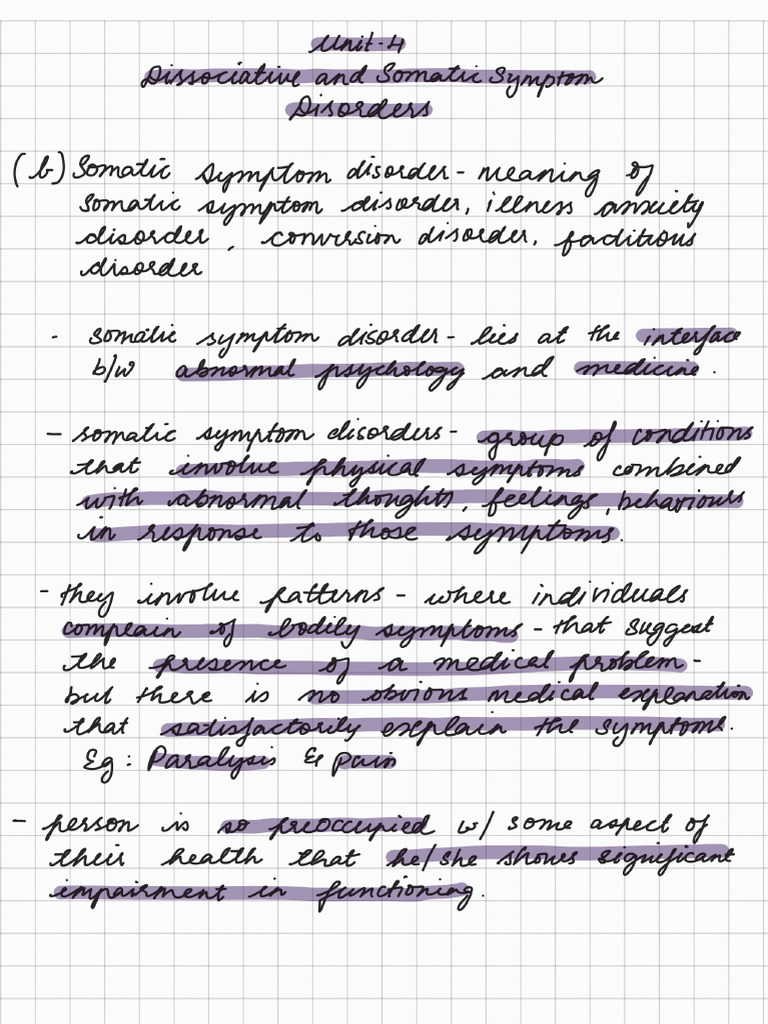 Unit-4
Dissociative and Somatic Symptom
Disorders
(b) Somatic symptom disorder - meaning of
somatic symptom disorder, illness anxiety
disorder, conversion disorder, factitious
disorder
- somatic symptom disorder - lies at the interface
b/w abnormal psychology and medicine.
- somatic symptom disorders - group of conditions
that involve physical symptoms combined
with abnormal thoughts, feelings, behaviours
in response to those symptoms.
- they involve patterns - where individuals
complain of bodily symptoms - that suggest
the presence of a medical problem -
but there is no obvious medical explanation
that satisfactorily explain the symptoms.
Eg: Paralysis & pain
- person is so preoccupied w/ some aspect of
their health that he/she shows significant
impairment in functioning.